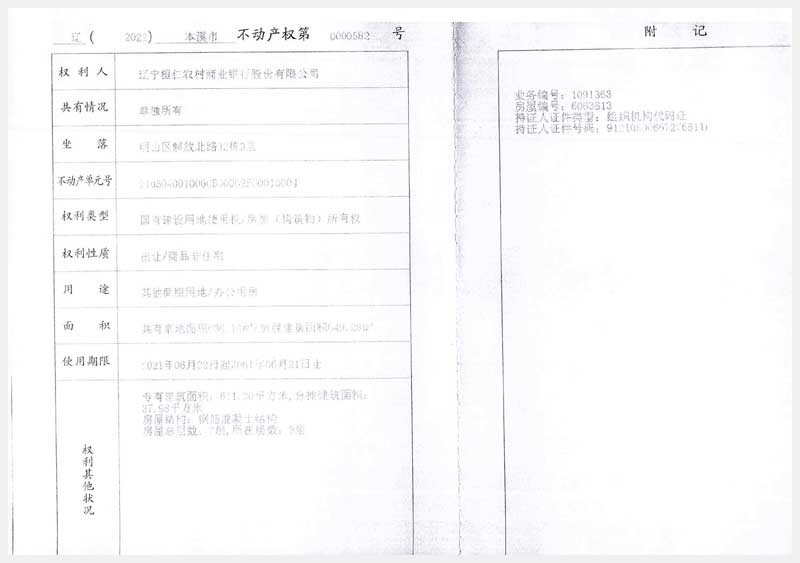 辽 ( 2022) 本溪市 不动产权第 0000582 号
权利人 辽宁桓仁农村商业银行股份有限公司
共有情况 单独所有
坐落 明山区解放北路 栋3层
不动产单元号
权利类型 国有建设用地使用权/房屋(构筑物)所有权
权利性质 出让/商品非住宅
用途 其他商服用地/办公用房
面积 共有宗地面积 /房屋建筑面积649.28㎡
使用期限 2021年06月22日起2061年06月21日止
权利其他状况
专有建筑面积:611.30平方米,分摊建筑面积:
37.98平方米
房屋结构:钢筋混凝土结构
房屋总层数:7层,所在层数:3层
附记
业务编号:1091363
房屋编号:6063613
持证人证件类型:组织机构代码证
持证人证件号码: